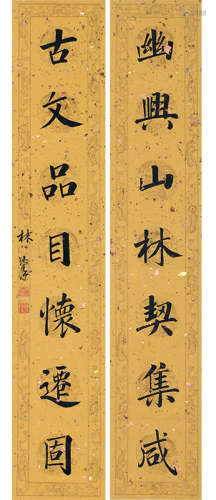 幽興山林契集咸
古文品目懷遷固
林